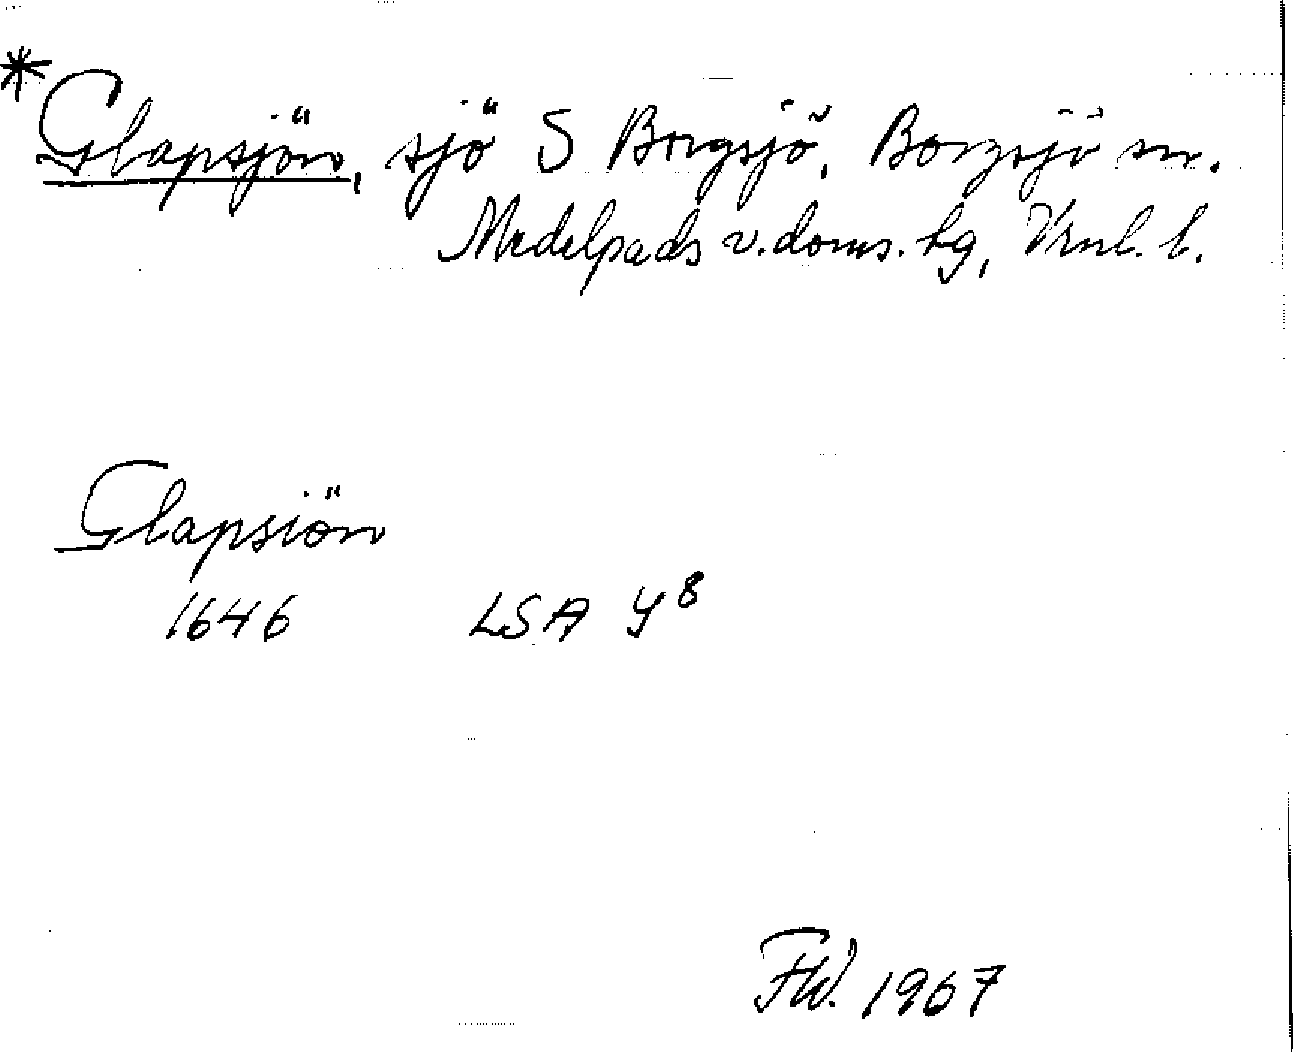 * Glapsjön, sjö S Borgsjö, Borgsjö sn.
Medelpads v. doms. tg, Vrnl. l.
Glapsiön
1646 LSA Y8
FW. 1967